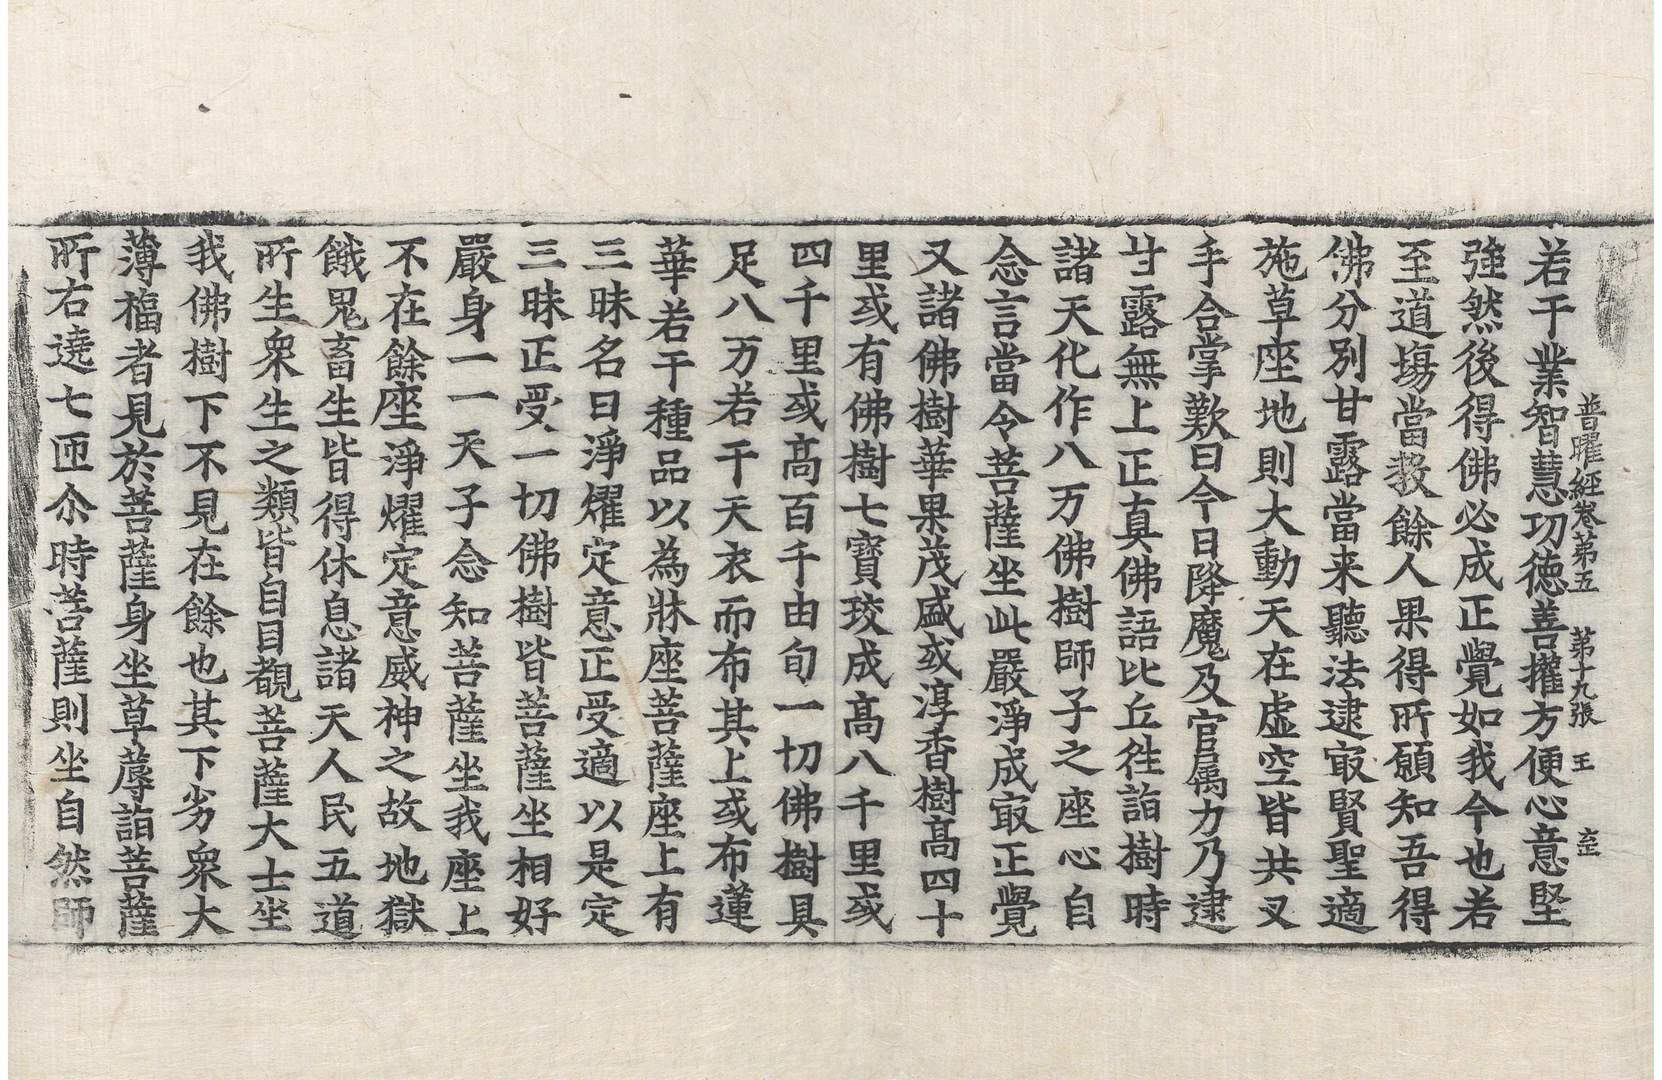 普曜經卷第五 第十九張 王
若干業智慧功德善權方便心意堅
強然後得佛必成正覺如我今也若
至道塲當教餘人果得所願知吾得
佛分別甘露當来聽法逮㝡賢聖適
施草座地則大動天在虛空皆共叉
手合掌歎曰今日降魔及官属力乃逮
甘露無上正真佛語比丘徃詣樹時
諸天化作八万佛樹師子之座心自
念言當令菩薩坐此嚴淨成㝡正覺
又諸佛樹華果茂盛或淳香樹高四十
里或有佛樹七寶挍成高八千里或
四千里或高百千由旬一切佛樹具
足八万若干天衣而布其上或布蓮
華若干種品以為牀座菩薩座上有
三昧名曰淨燿定意正受適以是定
三昧正受一切佛樹皆菩薩坐相好
嚴身一一天子念知菩薩坐我座上
不在餘座淨燿定意威神之故地獄
餓鬼畜生皆得休息諸天人民五道
所生衆生之類皆自目覩菩薩大士坐
我佛樹下不見在餘也其下劣衆大
薄福者見於菩薩身坐草蓐詣菩薩
所右遶七匝尒時菩薩則坐自然師